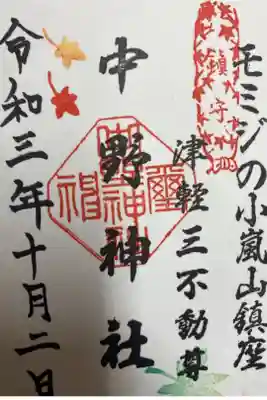 モミジの小嵐山鎮座
津軽三不動尊
中野神社
令和三年十月二日